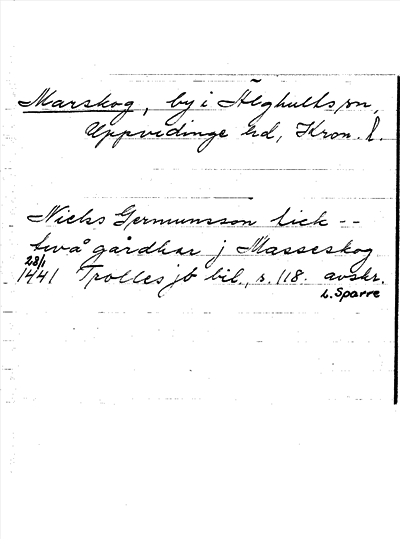 Marskog, by i Älghults sn,
Uppvidinge hd, Kron. l.
Nicls Germunsson fick --
två gårdhar j Masseskog
28/1
1441 Trolles jb bil., s. 118. avskr.
L. Sparre